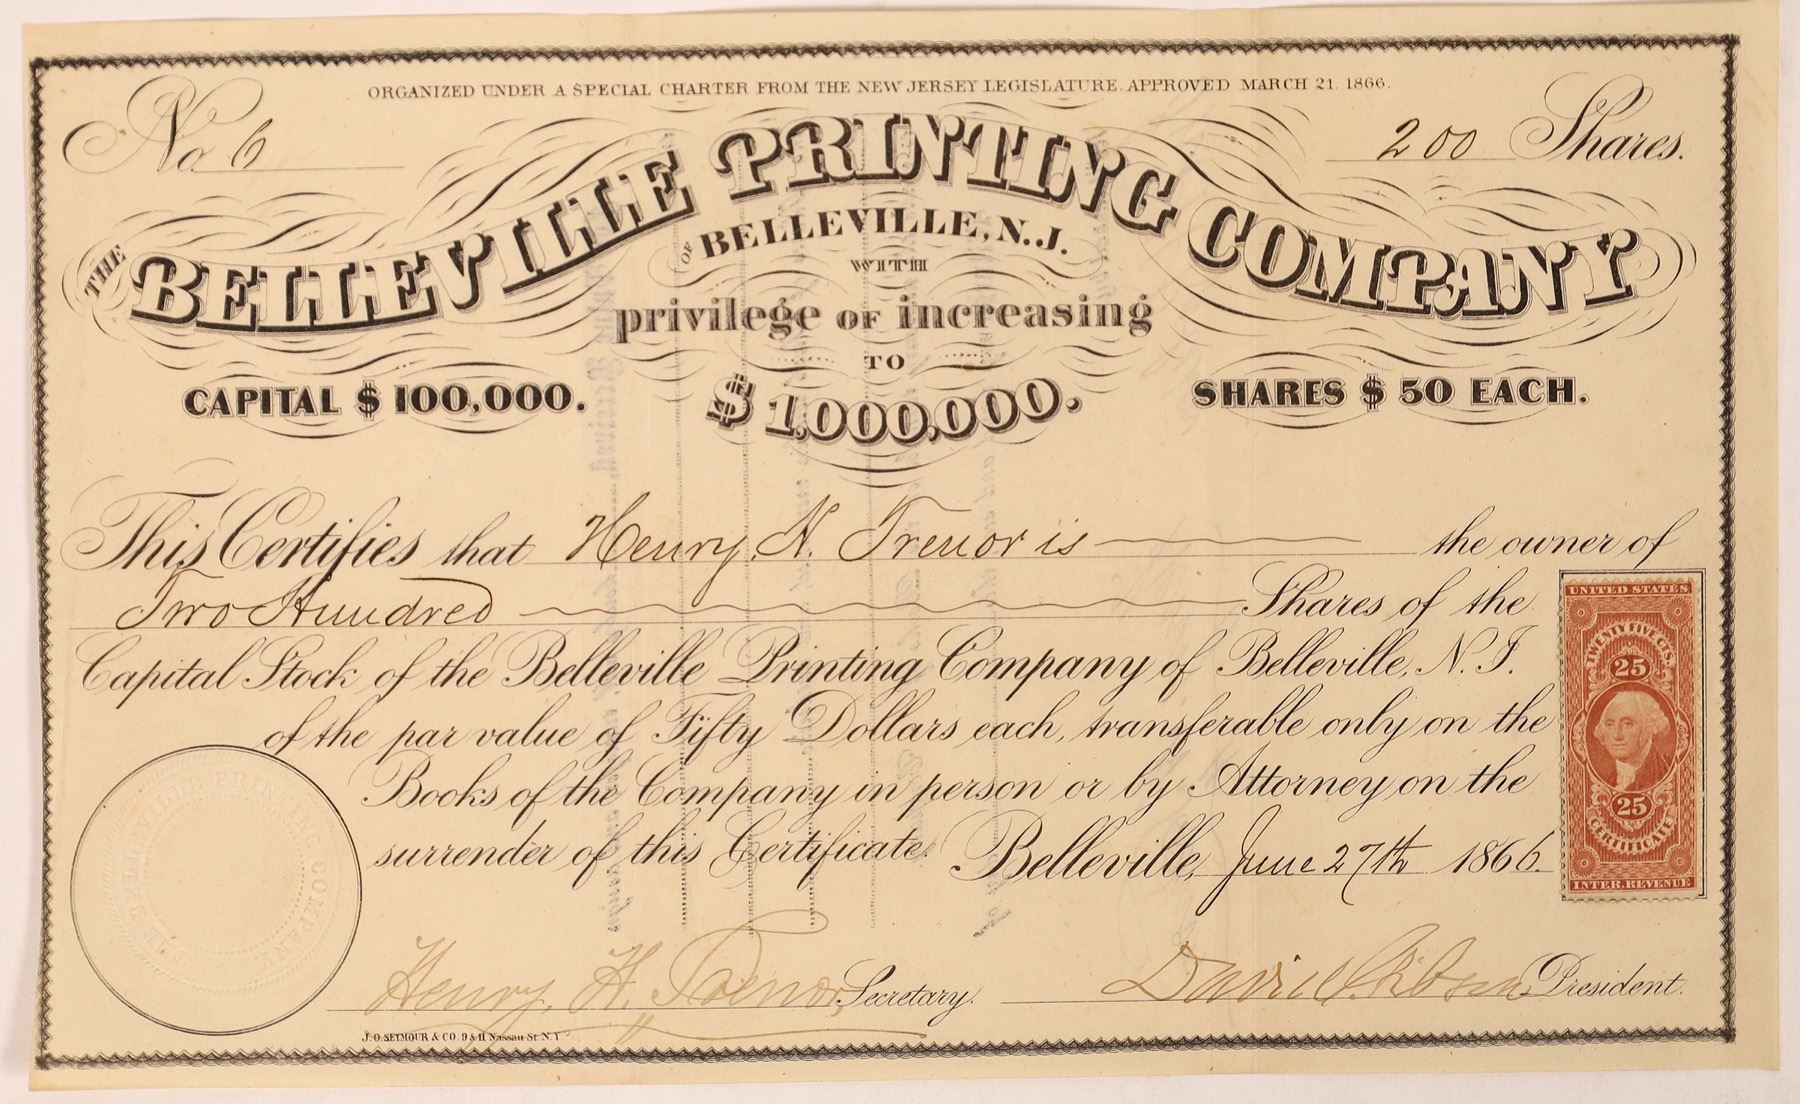 ORGANIZED UNDER A SPECIAL CHARTER FROM THE NEW JERSEY LEGISLATURE. APPROVED MARCH 21. 1866.
No. 6
200 Shares.
THE BELLEVILLE PRINTING COMPANY
OF BELLEVILLE, N.J.
WITH
privilege OF increasing
TO
CAPITAL $ 100,000.
$ 1,000,000.
SHARES $ 50 EACH.
This Certifies that Henry H. Trenor is the owner of
Two Hundred Shares of the
Capital Stock of the Belleville Printing Company of Belleville, N. J.
of the par value of Fifty Dollars each, transferable only on the
Books of the Company in person or by Attorney on the
surrender of this Certificate. Belleville, June 27th 1866.
UNITED STATES
TWENTY FIVE CTS.
25
25
CERTIFICATE
INTER. REVENUE
THE BELLEVILLE PRINTING COMPANY
Henry H. Trenor Secretary.
David Gibson President.
J. O. SEYMOUR & CO. 9 & 11 Nassau St. N.Y.